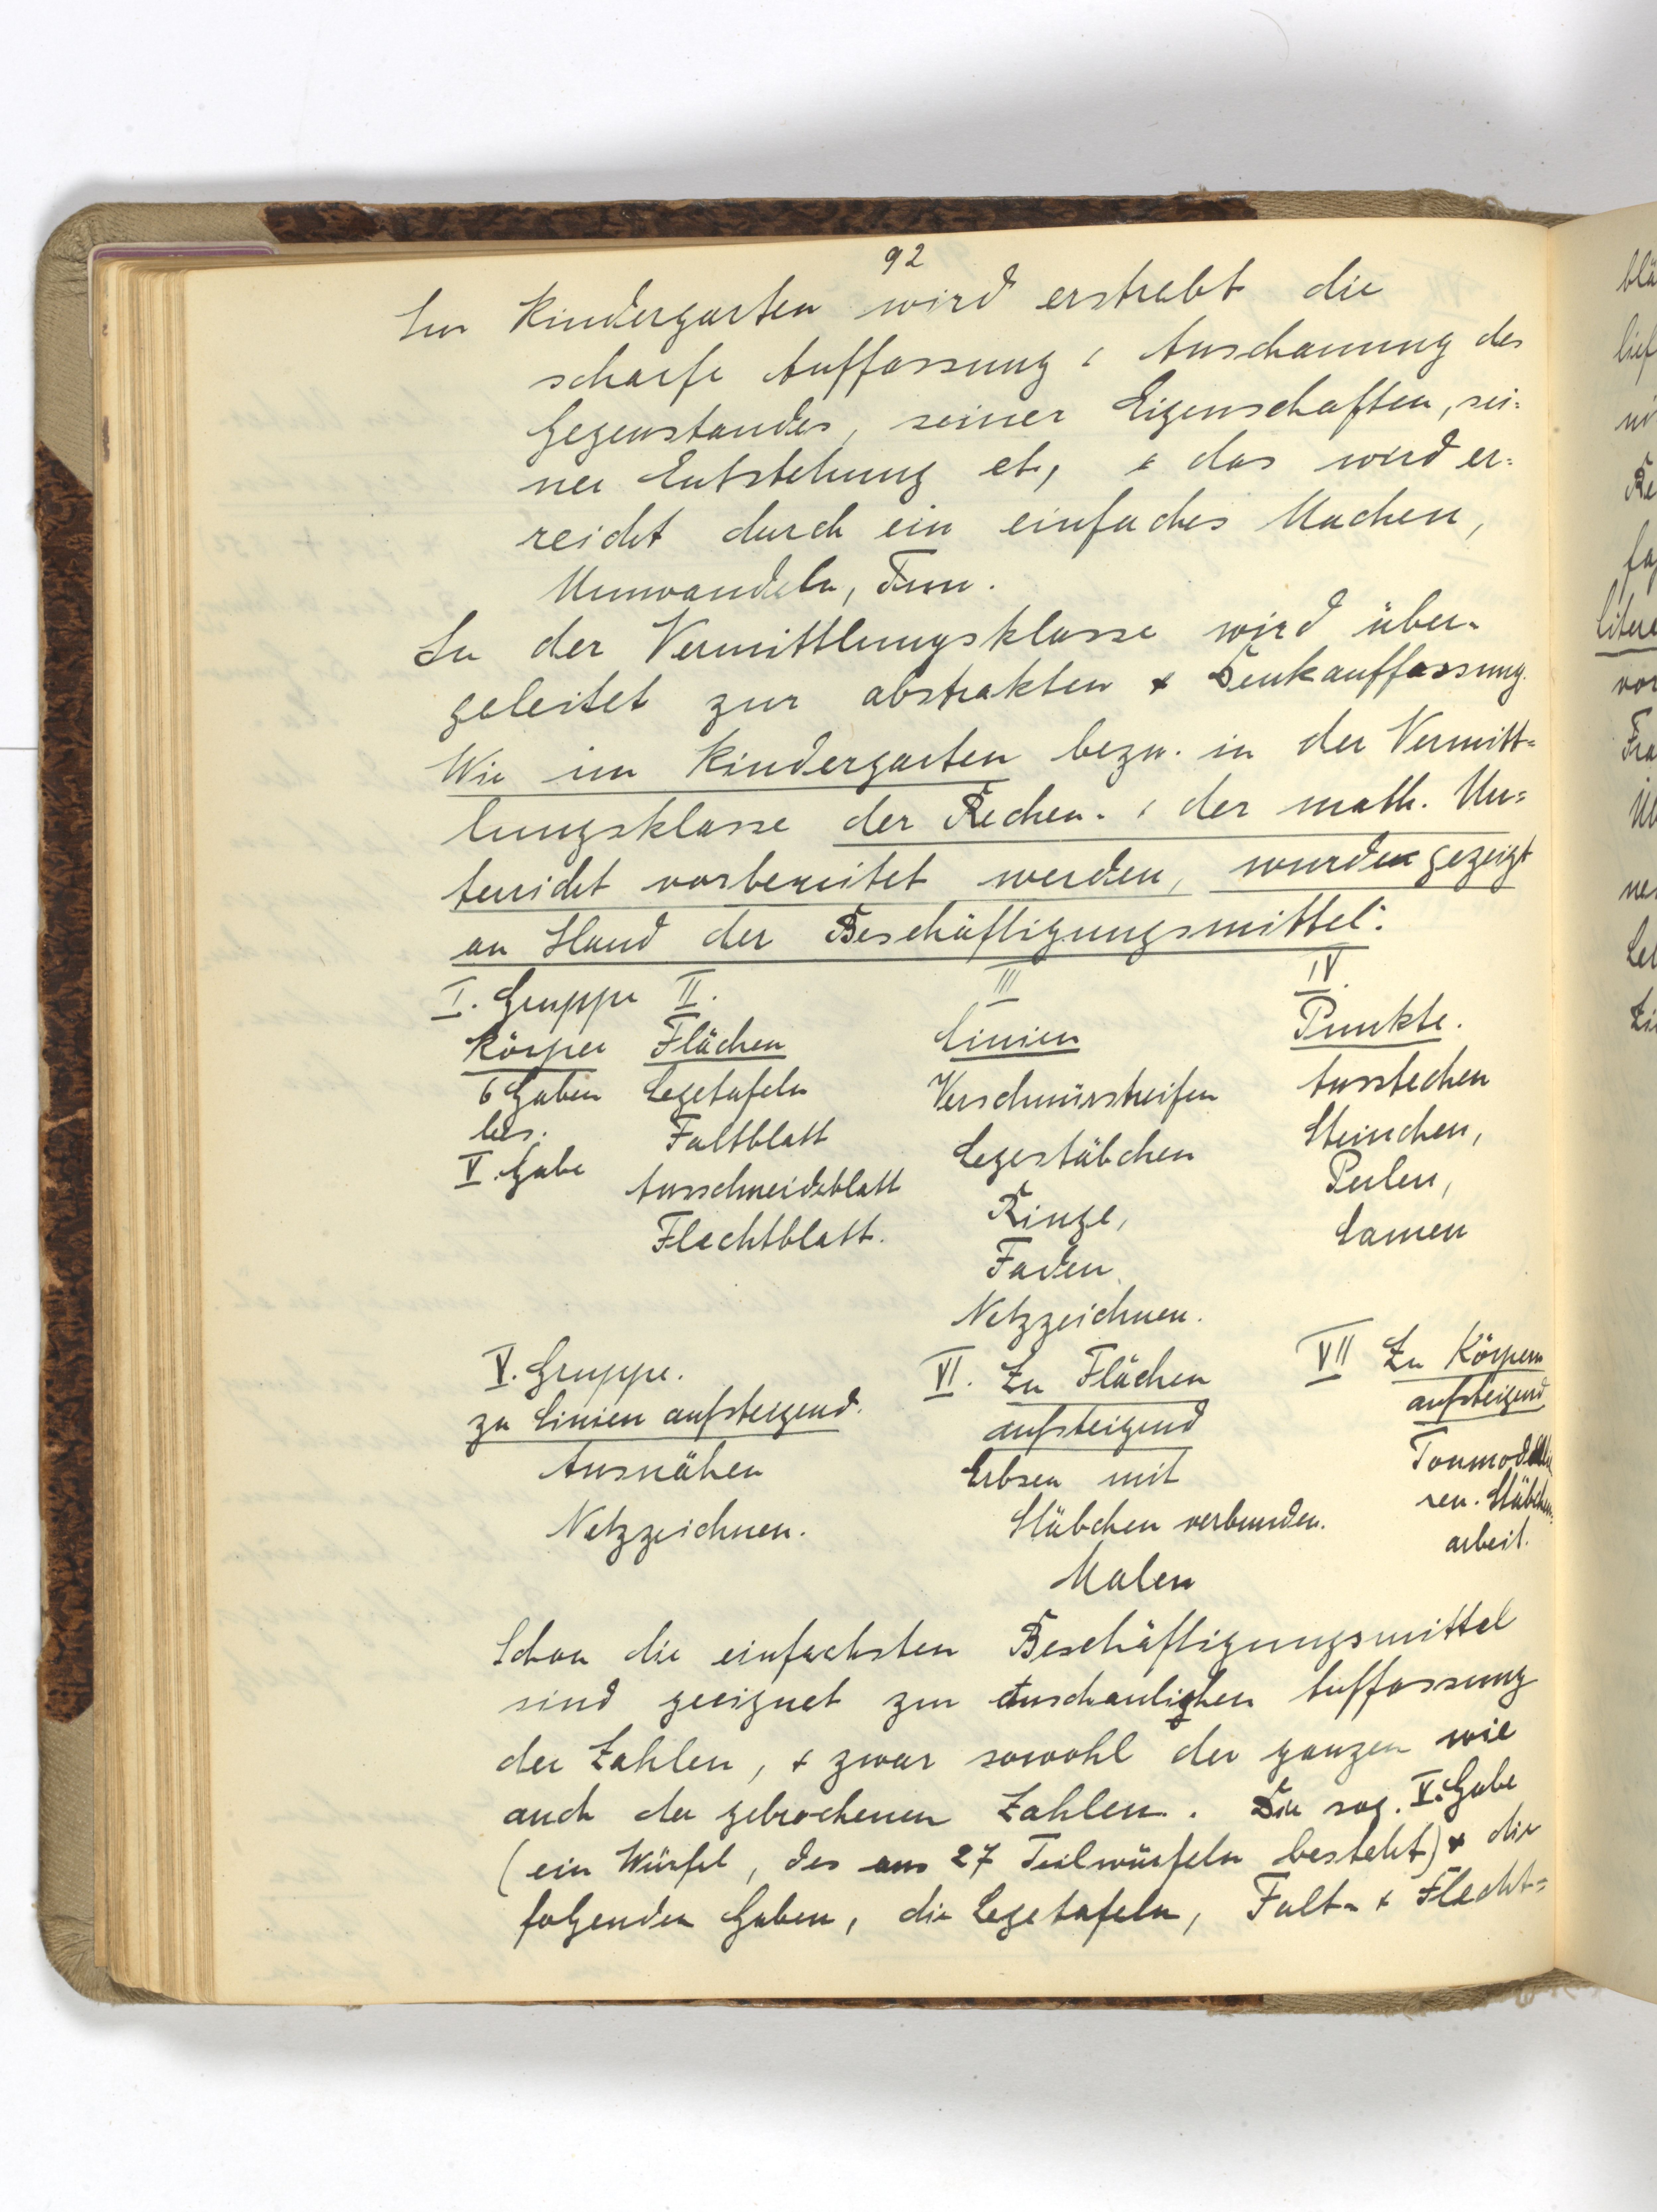 92
Im Kindergarten wird erstrebt die
scharfe Auffassung & Anschauung des
Gegenstandes, seiner Eigenschaften, sei=
ner Entstehung etc, & das wird er=
reicht durch ein einfaches Machen,
Umwandeln, Tun.
In der Vermittlungsklasse wird über=
geleitet zur abstrakten & Denkauffassung.
Wie im Kindergarten bezw. in der Vermitt=
lungsklasse der Rechen- & der math. Un=
terricht vorbereitet werden, wurde gezeigt
an Hand der Beschäftigungsmittel:
I. Gruppe II. III IV.
Körper Flächen Linien Punkte.
6 Gaben Legetafeln Verschnürstreifen Ausstechen
bes. Faltblatt Legestäbchen Steinchen,
V. Gabe Ausschneideblatt Ringe, Perlen,
Flechtblatt. Faden Samen
Netzzeichnen.
V. Gruppe. VI. Zu Flächen VII Zu Körpern
zu Linien aufsteigend. aufsteigend aufsteigend
Ausnähen Erbsen mit Tonmodellie
Netzzeichnen. Stäbchen verbunden. ren. Stäbchen=
Malen arbeit.
Schon die einfachsten Beschäftigungsmittel
sind geeignet zur anschaulichen Auffassung
der Zahlen, & zwar sowohl der ganzen wie
auch der gebrochenen Zahlen. Die sog. V. Gabe
(ein Würfel, der aus 27 Teilwürfeln besteht) & die
folgenden Gaben, die Legetafeln, Falt- & Flecht=